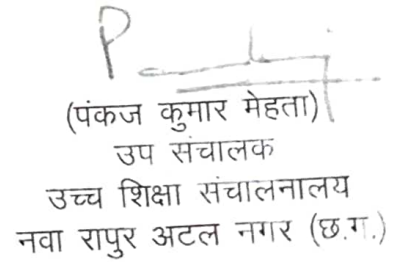 (पंकज कुमार मेहता)
उप संचालक
उच्च शिक्षा संचालनालय
नवा रापुर अटल नगर (छ.ग.)